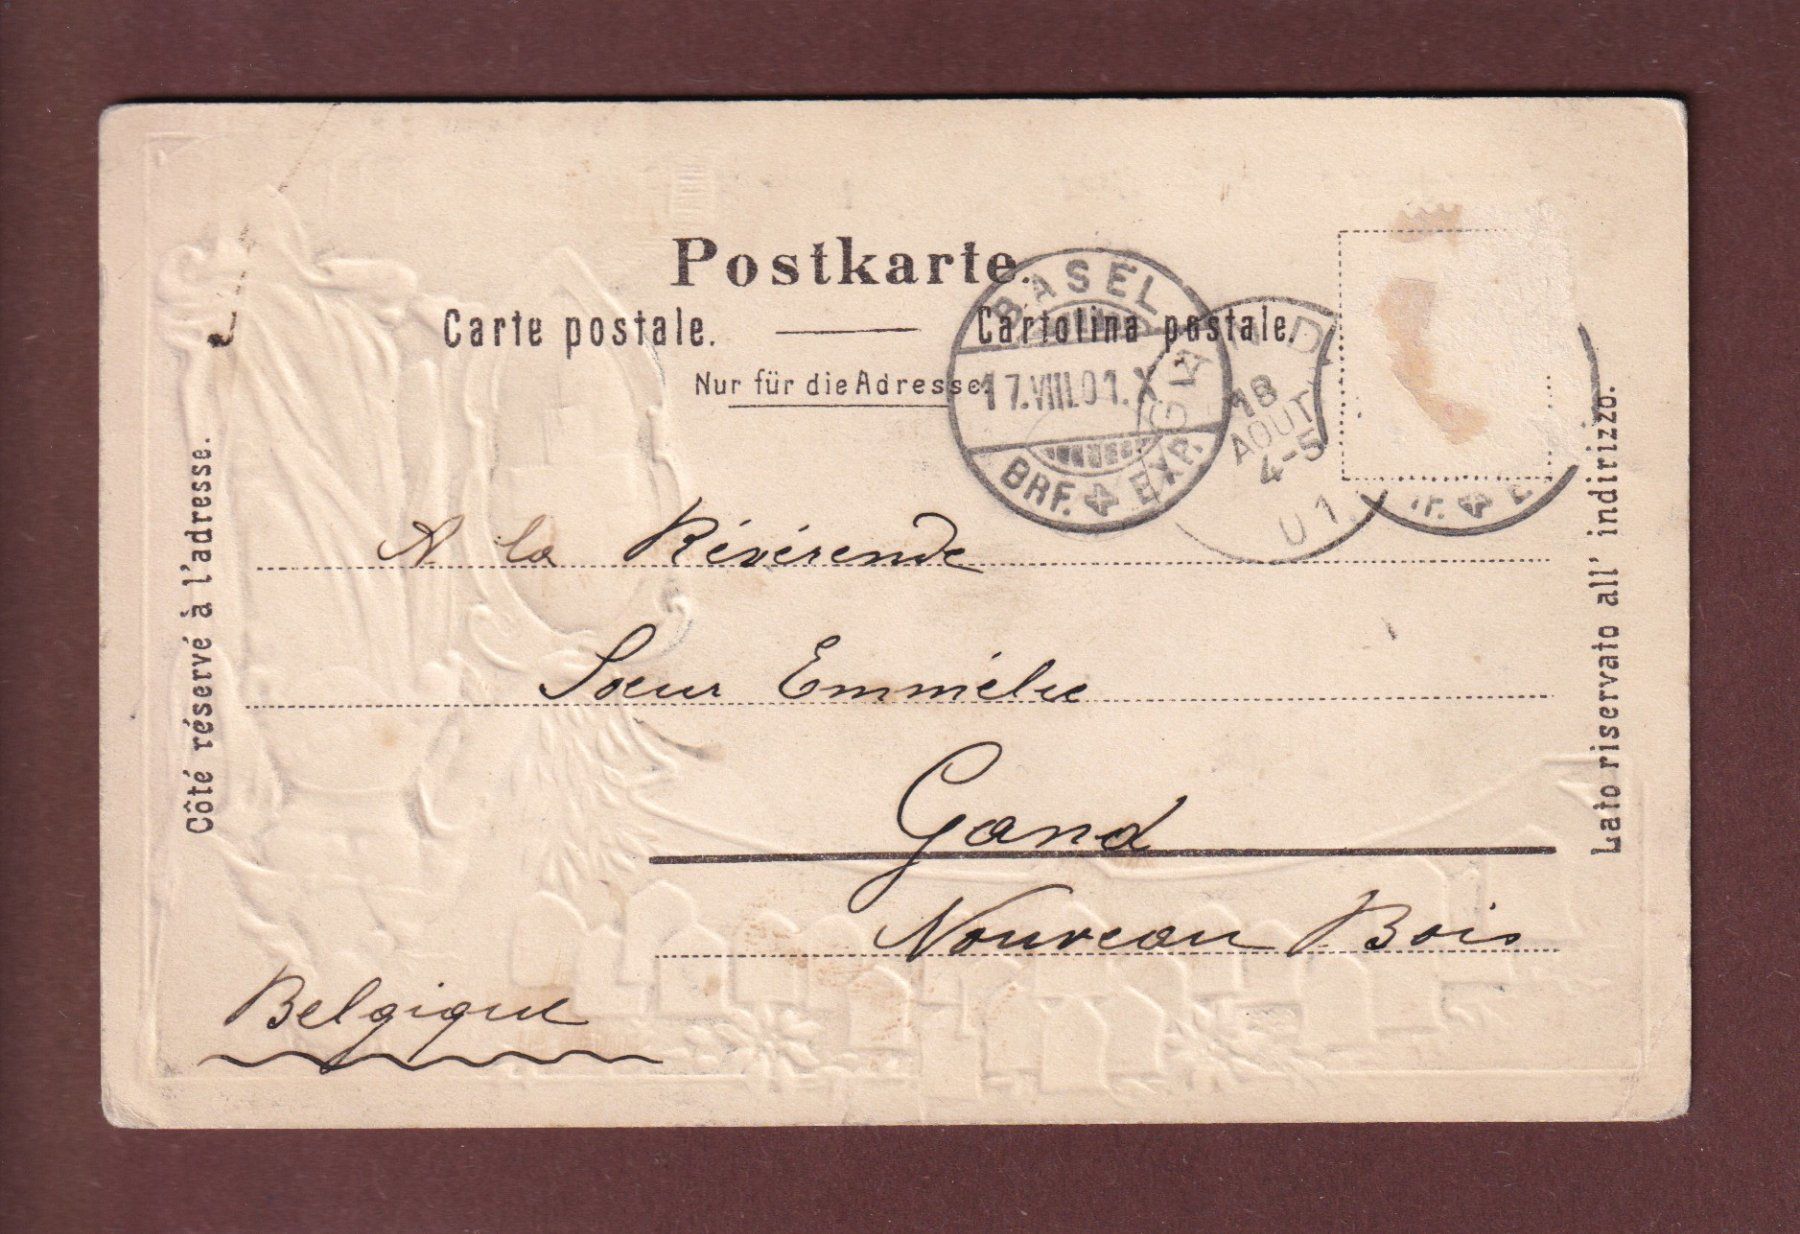 Postkarte.
Carte postale. Cartolina postale.
Nur für die Adresse.
BASEL
17.VIII.01.X
BRF. EXP.
18
AOUT
4-5
Côté réservé à l'adresse.
Lato riservato all' indirizzo.
A la Révérende
Soeur Emmélie
Gand
Nouveau Bois
Belgique